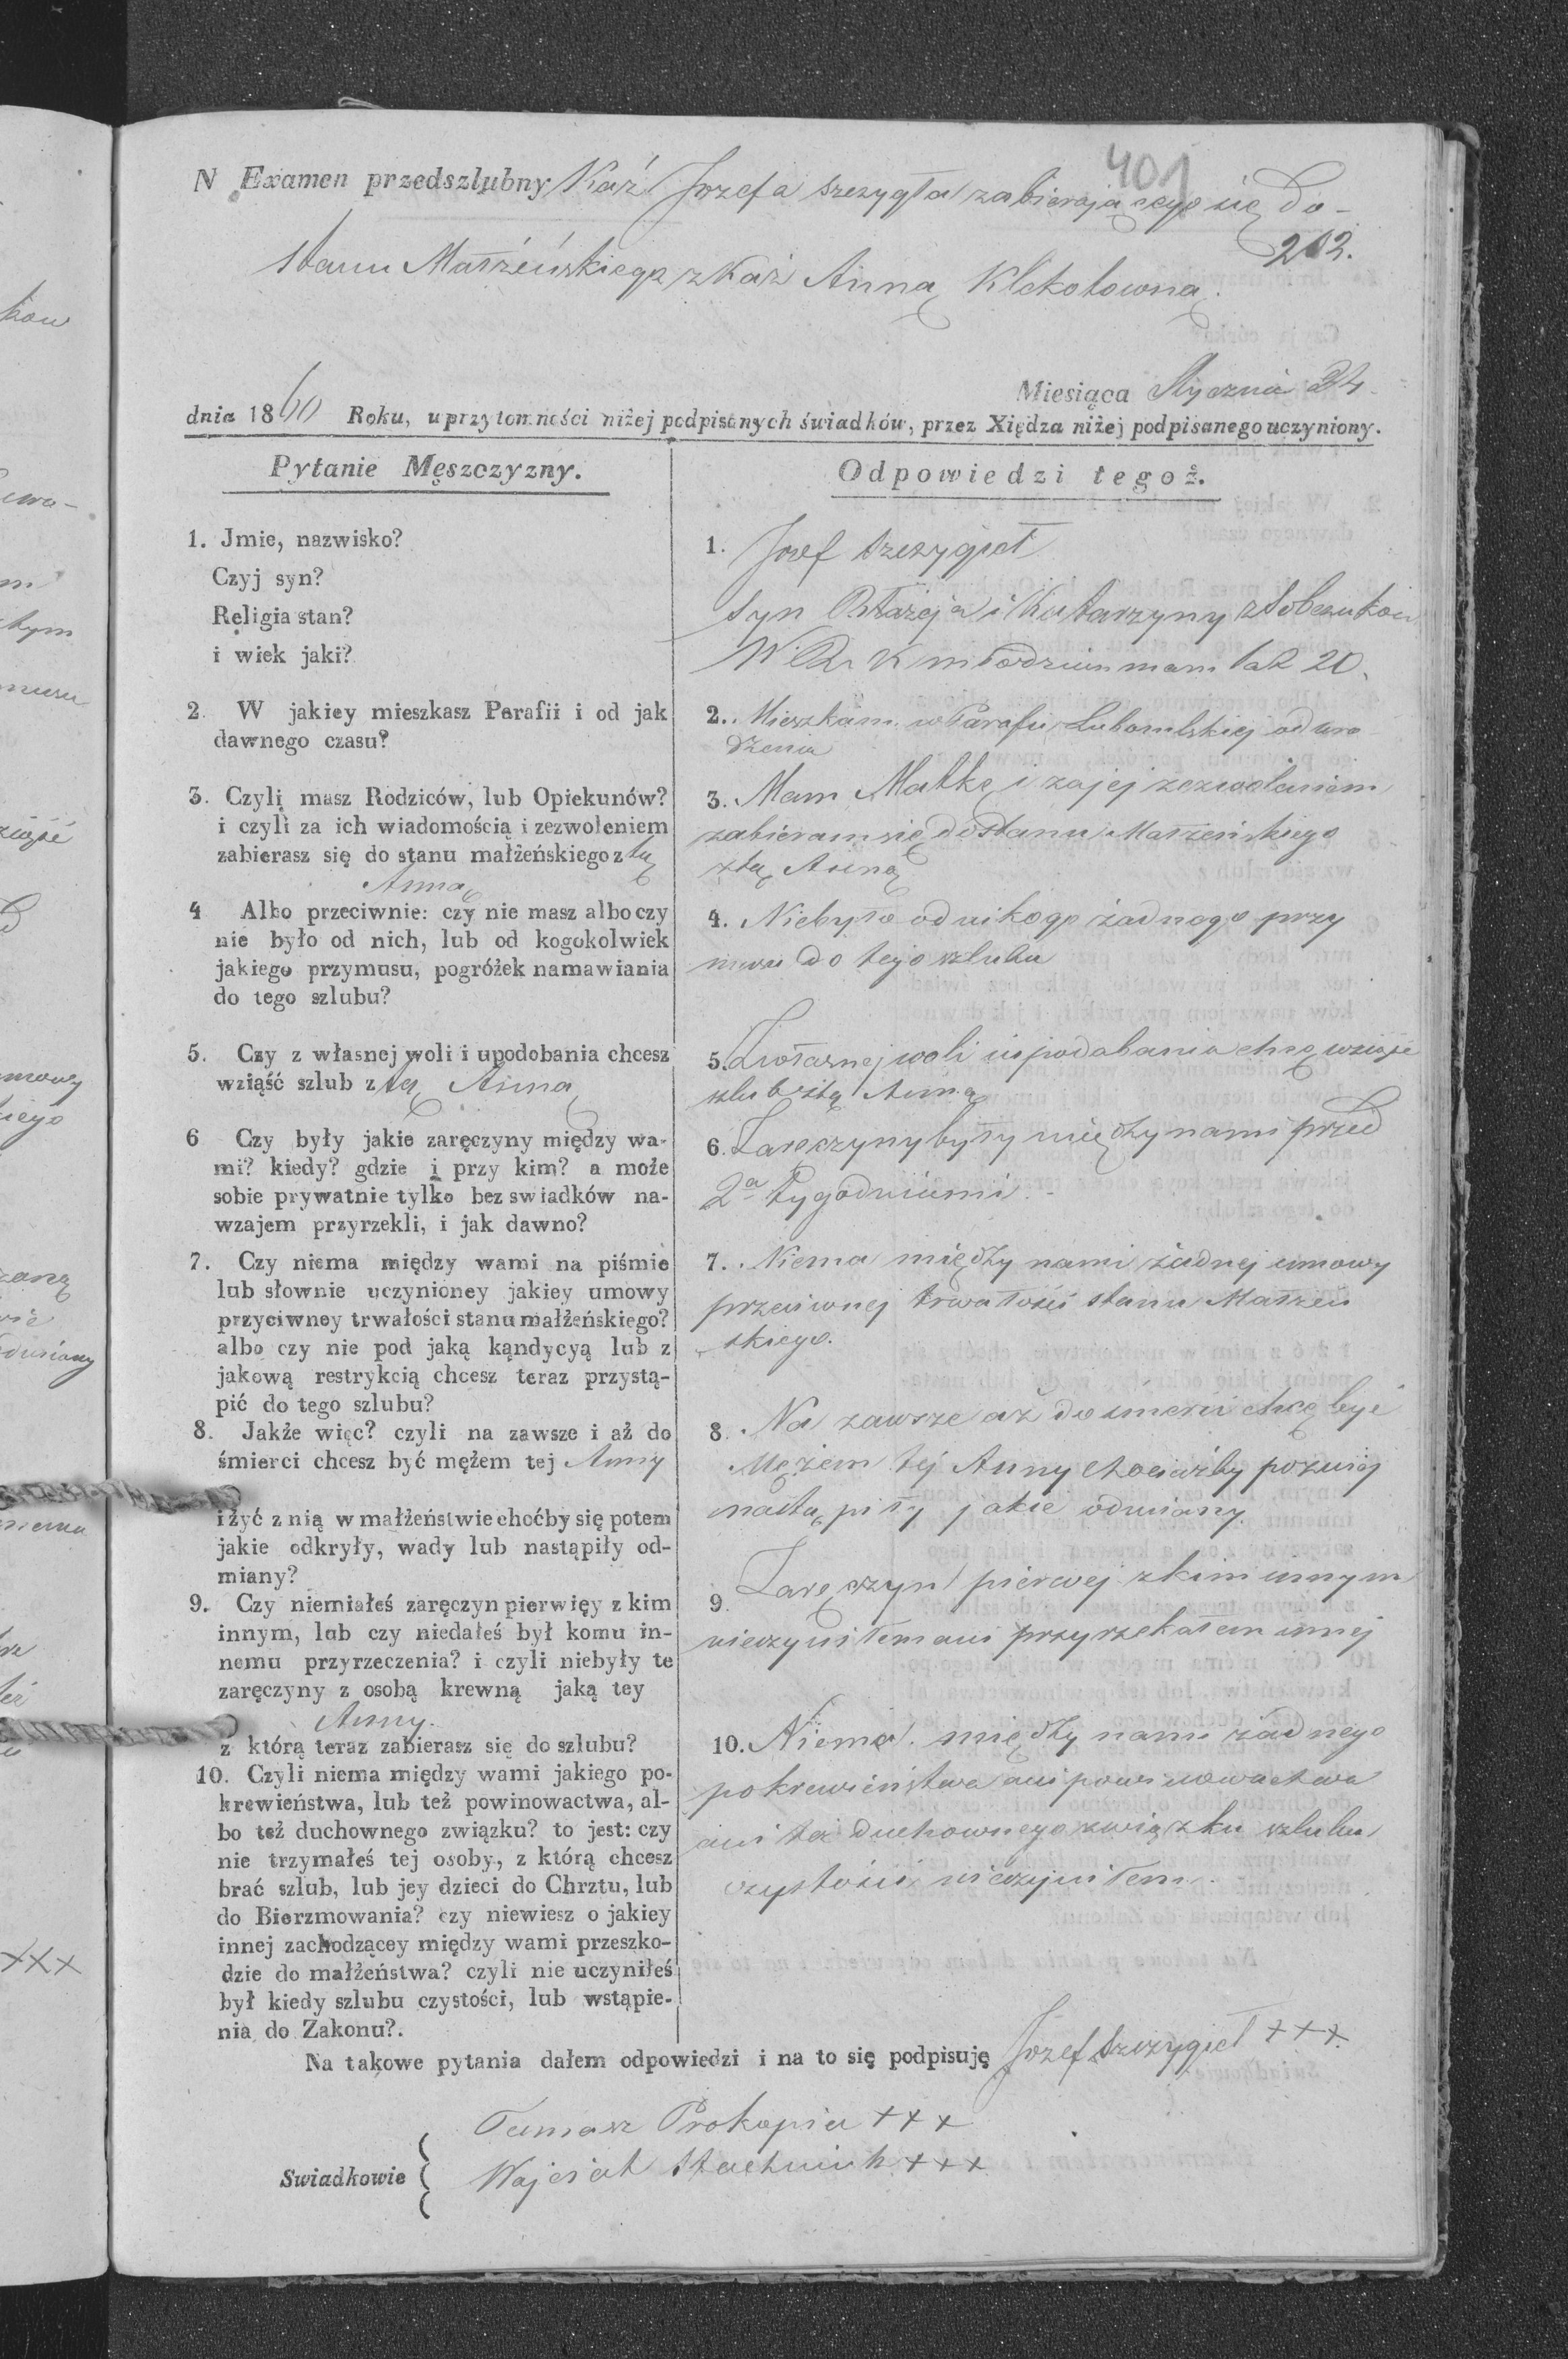 401
N Examen przedszlubny Każ Jozefa Szczygła zabierającego się do-
212.
stanu Małżeńskiego z Każ Anną Klekotowną.
Miesiąca Stycznia 24
dnia 1860 Roku, u przytomności niżej podpisanych świadków, przez Xiędza niżej podpisanego uczyniony.
Pytanie Męszczyzny.
1. Jmie, nazwisko?
Czyj syn?
Religia stan?
i wiek jaki?
2. W jakiey mieszkasz Parafii i od jak
dawnego czasu?
3. Czyli masz Rodziców, lub Opiekunów?
i czyli za ich wiadomością i zezwoleniem
zabierasz się do stanu małżeńskiego z tą
Anną
4 Albo przeciwnie: czy nie masz albo czy
nie było od nich, lub od kogokolwiek
jakiego przymusu, pogróżek namawiania
do tego szlubu?
5. Czy z własnej woli i upodobania chcesz
wziąść szlub z tą Anną
6 Czy były jakie zaręczyny między wa-
mi? kiedy? gdzie i przy kim? a może
sobie prywatnie tylko bez swiadków na-
wzajem przyrzekli, i jak dawno?
7. Czy niema między wami na piśmie
lub słownie uczynioney jakiey umowy
przyciwney trwałości stanu małżeńskiego?
albo czy nie pod jaką kąndycyą lub z
jakową restrykcią chcesz teraz przystą-
pić do tego szlubu?
8. Jakże więc? czyli na zawsze i aż do
śmierci chcesz być mężem tej Anny
i żyć z nią w małżeństwie choćby się potem
jakie odkryły, wady lub nastąpiły od-
miany?
9. Czy niemiałeś zaręczyn pierwięy z kim
innym, lub czy niedałeś był komu in-
nemu przyrzeczenia? i czyli niebyły te
zaręczyny z osobą krewną jaką tey
Anny.
z którą teraz zabierasz się do szlubu?
10. Czyli niema między wami jakiego po-
krewieństwa, lub też powinowactwa, al-
bo też duchownego związku? to jest: czy
nie trzymałeś tej osoby, z którą chcesz
brać szlub, lub jey dzieci do Chrztu, lub
do Bierzmowania? czy niewiesz o jakiey
innej zachodzącey między wami przeszko-
dzie do małżeństwa? czyli nie uczyniłeś
był kiedy szlubu czystości, lub wstąpie-
nia do Zakonu?.
Odpowiedzi tegoż.
1. Jozef Szczygieł
Syn Błażeja i Katarzyny z
W. R. K młodzian mam lat 20.
2. Mieszkam w Parafii Lubomlskiej od uro
dzenia
3. Mam Matkę i za jej zezwoleniem
zabieram się do stanu Małżeńskiego
z tą Anną
4. Niebyło od nikogo żadnego przy
musu do tego szlubu
5. Z własnej woli i upodobania chcę wziąść
szlub z tą Anną
6. Zaręczyny były między nami przed
2a Tygodniami.-
7. Niema między nami żadnej umowy
przeciwnej trwałości stanu Małżeń
skiego.
8. Na zawsze aż do śmierci chcę być
Mężem tej Anny chociażby pozniej
nastąpiły jakie odmiany.
9. Zaręczyn pierwej z kim innym
nieczyniłem ani przyrzekałem innej
10. Niema między nami żadnego
pokrewieństwa ani powinowactwa
ani też duchownego związku szlubu
czystości nieczyniłem.
Na takowe pytania dałem odpowiedzi i na to się podpisuję Jozef Szczygieł +++
Tomasz Prokopiu +++
Swiadkowie { Wojciech Stachniuk +++